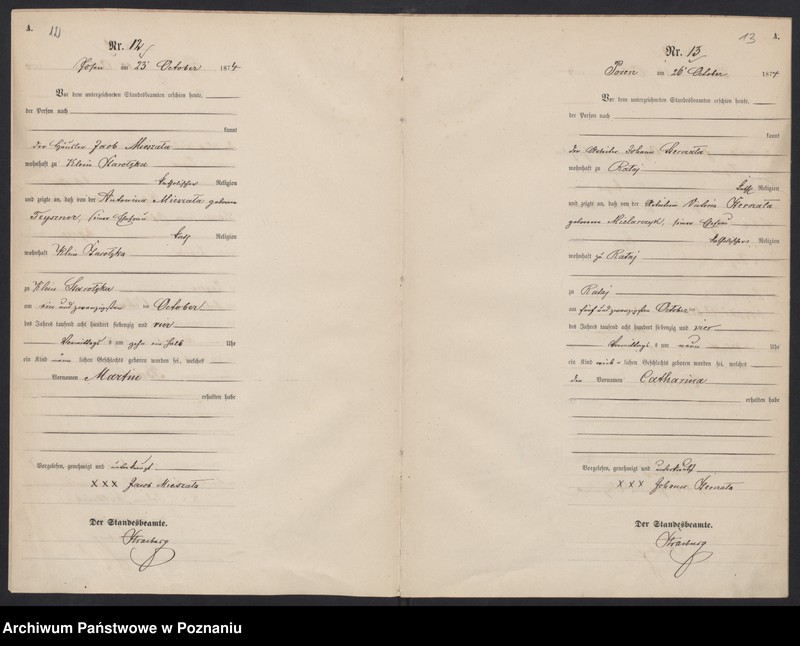 A. 12
Nr. 12
Posen am 23 October 1874
Vor dem unterzeichneten Standesbeamten erschien heute,
der Person nach
kannt
der Häusler Jacob Mieszala
wohnhaft zu Klein Starolęka
katholischer Religion
und zeigte an, daß von der Antonina Mieszala geborene
seiner Ehefrau
kath Religion
wohnhaft Klein Starolęka
zu Klein Starolęka
am ein und zwanzigsten October
des Jahres tausend acht hundert siebenzig und vier
Vormittags um zehn ein halb Uhr
ein Kind männlichen Geschlechts geboren worden sei, welches
Vornamen Martin
erhalten habe
Vorgelesen, genehmigt und unterkreuzt
XXX Jacob Mieszala
Der Standesbeamte.
13 A.
Nr. 13
Posen am 26 October 1874
Vor dem unterzeichneten Standesbeamten erschien heute,
der Person nach
kannt
der Johann
wohnhaft zu Rataj
kath Religion
und zeigte an, daß von der
geborene seiner Ehefrau
katholischer Religion
wohnhaft zu Rataj
zu Rataj
am fünf und zwanzigsten October
des Jahres tausend acht hundert siebenzig und vier
Vormittags um neun Uhr
ein Kind weiblichen Geschlechts geboren worden sei, welches
den Vornamen Catharina
erhalten habe
Vorgelesen, genehmigt und unterkreuzt
XXX Johann
Der Standesbeamte.
Archiwum Państwowe w Poznaniu